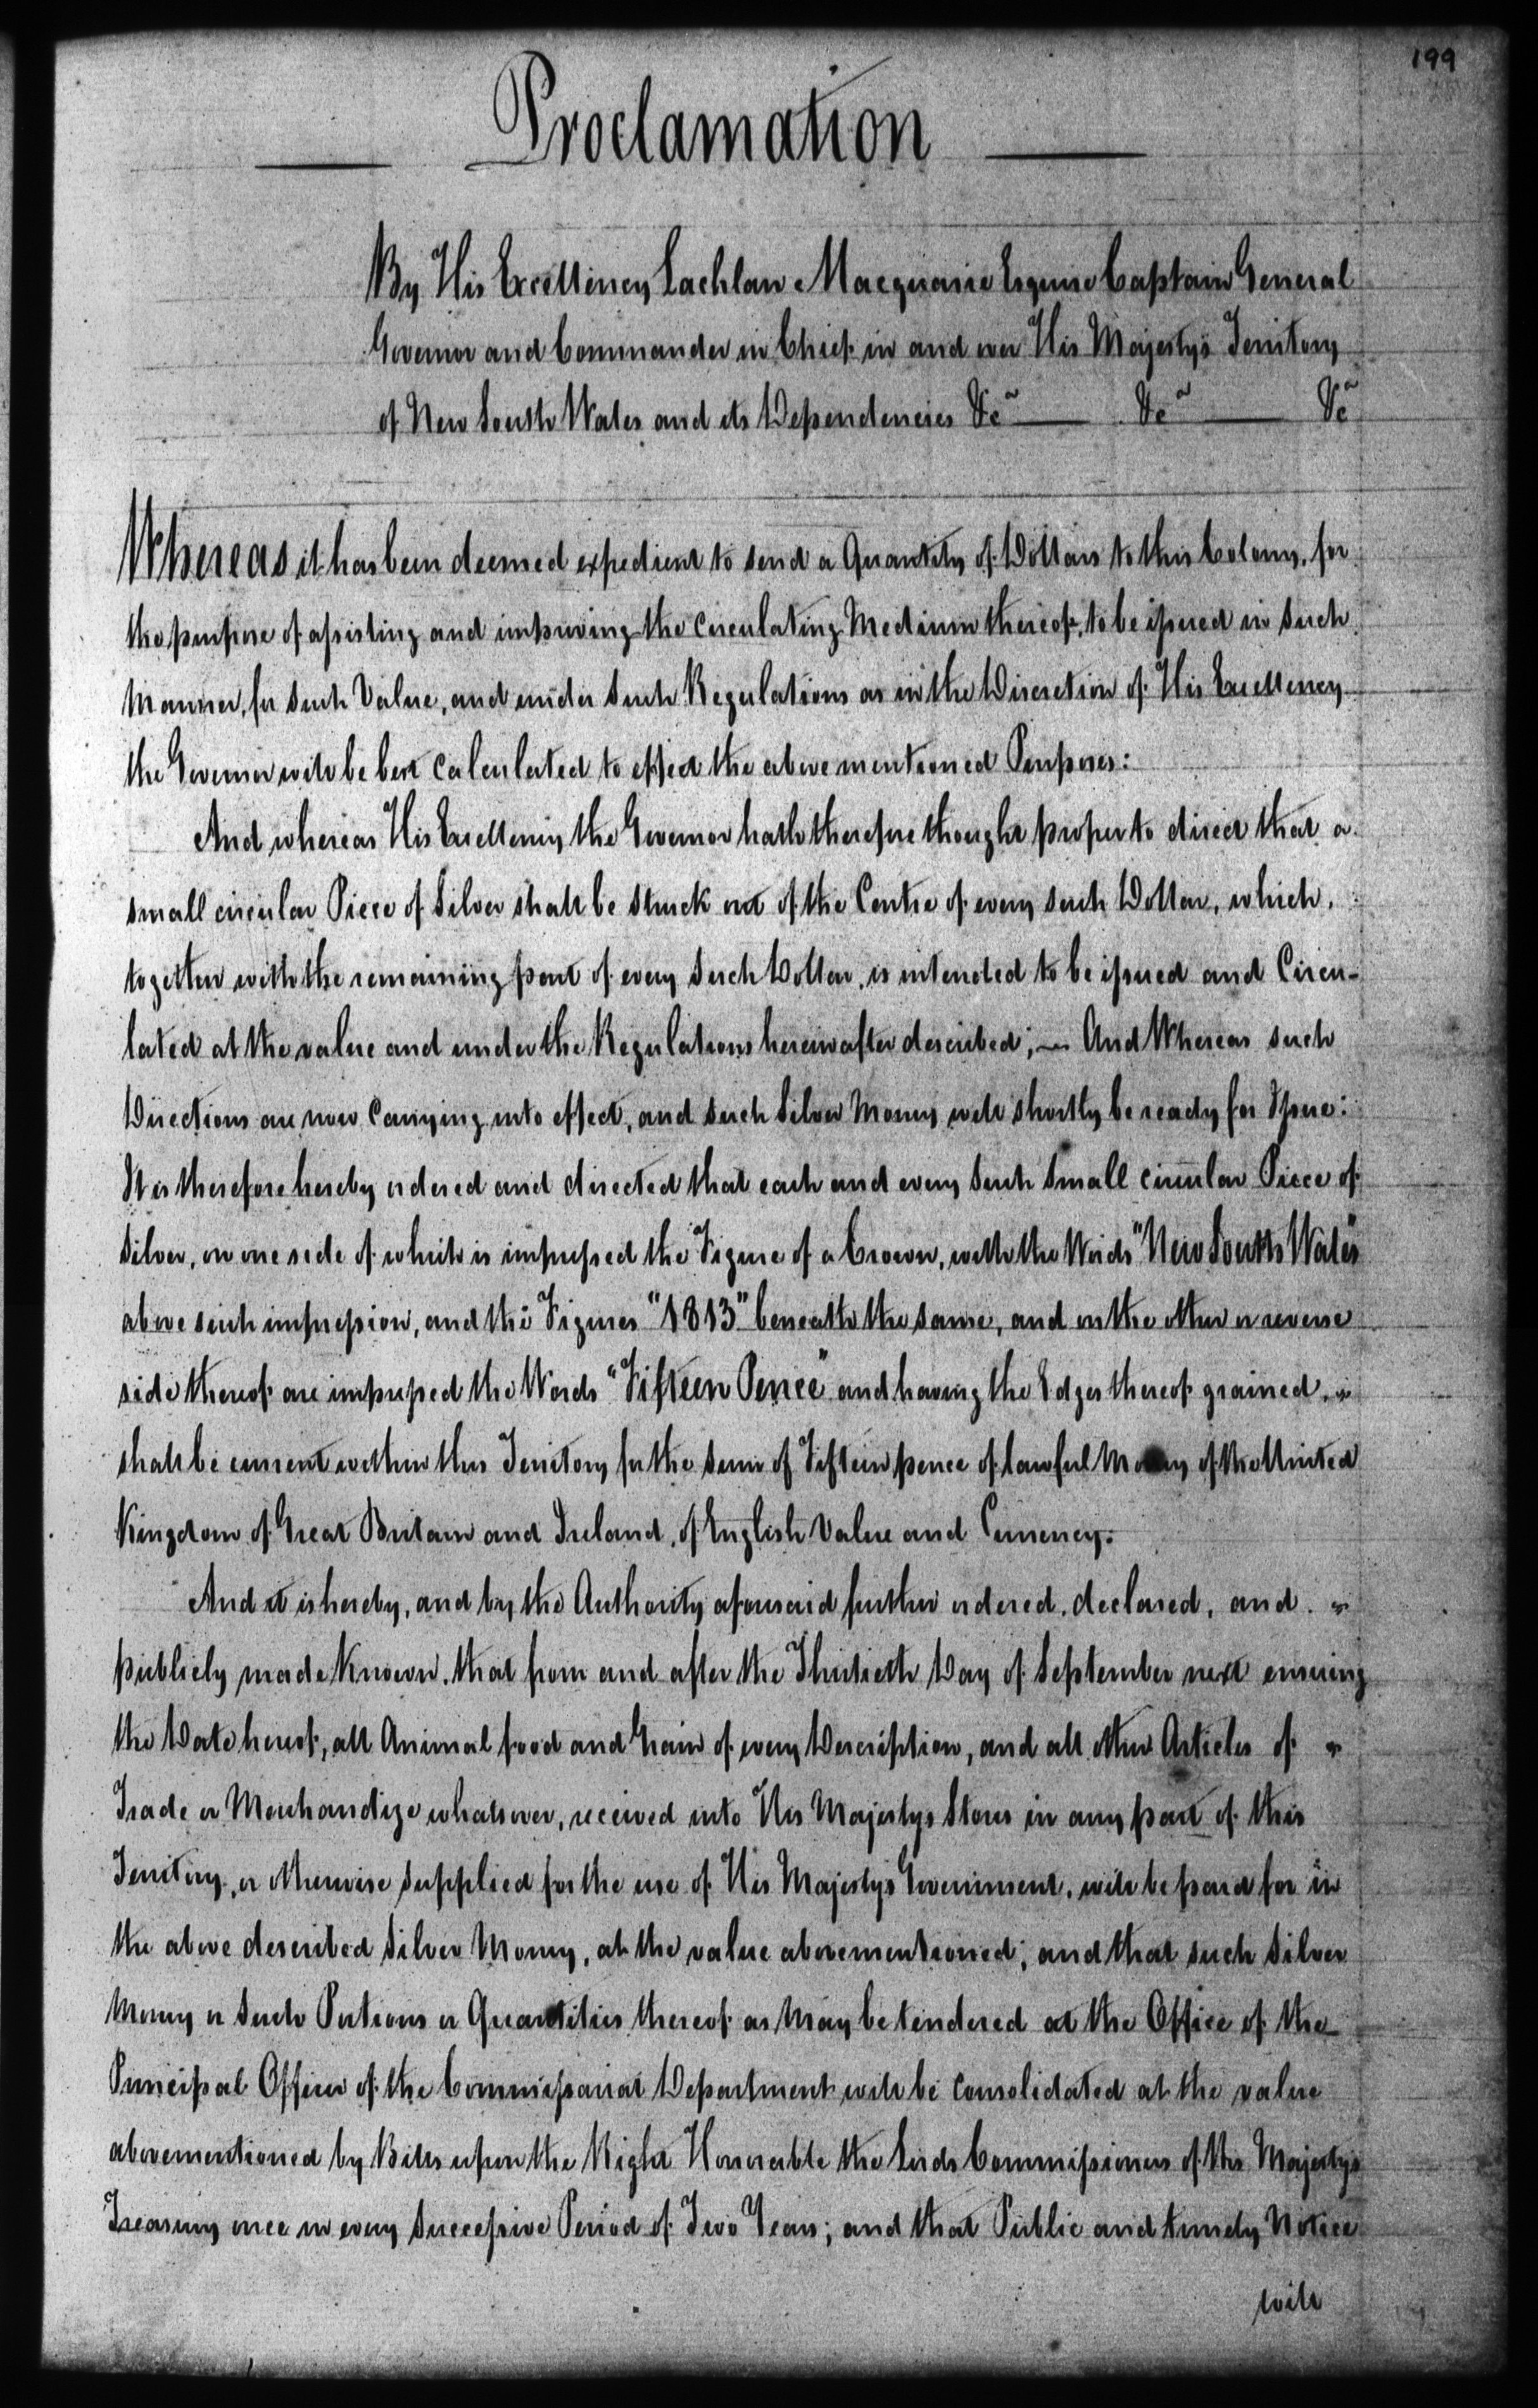 199
Proclamation
By His Excellency Lachlan Macquarie Esquire Captain General
Governor and Commander in Chief in and over His Majesty's Territory
of New South Wales and its Dependencies &c &c &c
Whereas it has been deemed expedient to send a Quantity of Dollars to this Colony, for
the purpose of assisting and improving the circulating Medium thereof, to be issued in such
Manner, for such Value, and under such Regulations as in the Discretion of His Excellency
the Governor will be best calculated to effect the above mentioned Purposes:
And whereas His Excellency the Governor hath therefore thought proper to direct that a
small circular Piece of Silver shall be struck out of the Centre of every such Dollar, which,
together with the remaining part of every such Dollar, is intended to be issued and Circu-
lated at the value and under the Regulations hereinafter described; — And Whereas such
Directions are now Carrying into effect, and such Silver Money will shortly be ready for Issue:
It is therefore hereby ordered and directed that each and every such small circular Piece of
Silver, on one side of which is impressed the Figure of a Crown, with the Words "New South Wales"
above such impression, and the Figures "1813" beneath the same, and on the other or reverse
side thereof are impressed the Words "Fifteen Pence" and having the Edges thereof grained,
shall be current within this Territory for the sum of Fifteen pence of lawful Money of the United
Kingdom of Great Britain and Ireland, of English Value and Currency.
And it is hereby, and by the Authority aforesaid further ordered, declared, and
publicly made Known, that from and after the Thirtieth Day of September next ensuing
the Date hereof, all Animal food and Grain of every Description, and all other Articles of
Trade or Merchandize whatsoever, received into His Majestys Stores in any part of this
Territory, or otherwise supplied for the use of His Majestys Government, will be paid for in
the above described Silver Money, at the value abovementioned; and that such Silver
Money or such Portions or Quantities thereof as May be tendered at the Office of the
Principal Officer of the Commissariat Department will be consolidated at the value
abovementioned by Bills upon the Right Honorable the Lords Commissioners of His Majestys
Treasury once in every successive Period of Two Years; and that Public and timely Notice
will